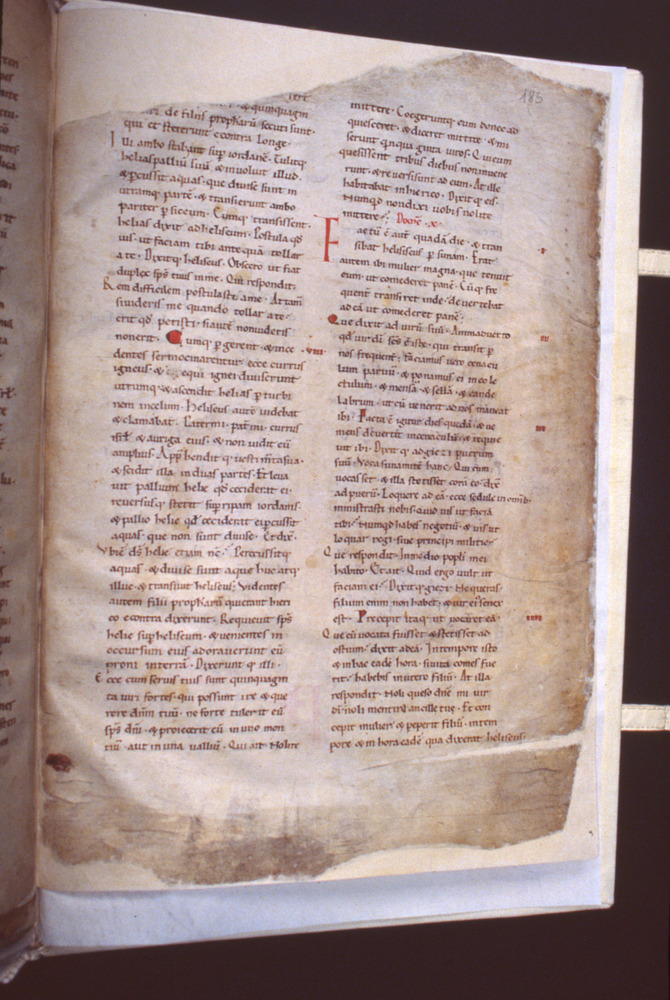 183
& quinquagin
de filiis propharū secuti sunt·
qui et steterunt econtra longe·
Illi ambo stabant sup iordanē· Tulitq;
helias palliū suū· & inuoluit illud·
& pcussit aquas· que diuise sunt in
utramq; partē· & transierunt ambo
pariter p siccum· Cumq; transissent·
helias dixit ad heliseum· Postula qđ
uis· ut faciam tibi ante quā tollar
a te· Dixitq; heliseus· Obsecro ut fiat
duplex spc tuus in me· Qui respondit·
Rem difficilem postulasti a me· Attam̄
si uideris me quando tollar a te·
erit qđ petisti· si autē non uideris
non erit· Cumq; pgerent· & ince
dentes sermocinarentur· ecce currus
igneus· & equi ignei diuiserunt
utrumq;· & ascendit helias p turbi
nem in celum· Heliseus autē uidebat
& clamabat· Pater mi· pat mi· currus
isrł· & auriga eius· & non uidit eū
amplius· Apphendit q; uestimta sua·
& scidit illa in duas partes· Et leua
uit pallium helie qđ ceciderat ei·
reuersusq; stetit sup ripam iordanis·
& pallio helie qđ ceciderat ei pcussit
aquas· que non sunt diuise· Et dix̄·
Vbi ē dš helie etiam nē? Percussitq;
aquas· & diuise sunt aque huc atq;
illuc· & transiuit heliseus· Videntes
autem filii propharū qui erant hieri
co econtra dixerunt· Requieuit spc
helie sup heliseum· & uenientes in
occursum eius adorauerunt eū
proni in terrā· Dixerunt q; illi·
Ecce cum seruis tuis sunt quinquagin
ta uiri fortes· qui possunt ire & que
rere dñm tuū· ne forte tulerit eū
spc dñi· & proiecerit eū in uno mon
tiū· aut in una valliū· Qui ait· Nolite
mittere· Coegeruntq; eum donec ad
quiesceret· & diceret mittite· & mi
serunt qnquaginta uiros· Qui cum
quesissent tribus diebus non inuene
runt· & reuersi sunt ad eum· At ille
habitabat in hierico· Dixit q; eis·
Numqđ non dixi uobis nolite
mittere?
Facta ē aut quadā die· & tran
sibat heliseus p sunam· Erat
autem ibi mulier magna· que tenuit
eum· ut comederet panē· Cūq; fre
quent transiret inde· deuertebat
ad eā ut comederet panē·
Que dixit ad uirū suū· Animaduerto
qđ uir dī scs ē iste· qui transit p
nos frequent· faciamus ero cenacu
lum paruū· & ponamus ei in eo le
ctulum· & mensā· & sellā· & cande
labrum· ut cū uenerit ad nos maneat
ibi· Facta ē igitur dies quedā· & ue
niens deuertit in cenaculū· & requie
uit ibi· Dixit q; ad giezi puerum
suū· Voca sunamitē hanc· Qui cum
uocasset· & illa stetisset corā eo· dix̄
ad puerū· Loquere ad eā· ecce sedule in omib;
ministrasti nobis· quid uis ut faciā
tibi· Numqđ habes negotiū· & uis ut
loquar regi· siue principi militie·
Que respondit· In medio popli mei
habito· Et ait· Quid ergo uult ut
faciam ei· Dixit q; giezi· Ne queras·
filium enim non habet· & uir ei senex
est· Precepit itaq; ut uocaret eā·
Que cū uocata fuisset· & stetisset ad
ostium· dixit ad eā· In tempore isto
& in hac eadē hora· si uita comes fue
rit· habebis in utero filiū· At illa
respondit· Noli queso dñe mi uir
dī noli mentiri ancille tue· Et con
cepit mulier· & peperit filiū· in tem
pore & in hora eadē qua dixerat heliseus·